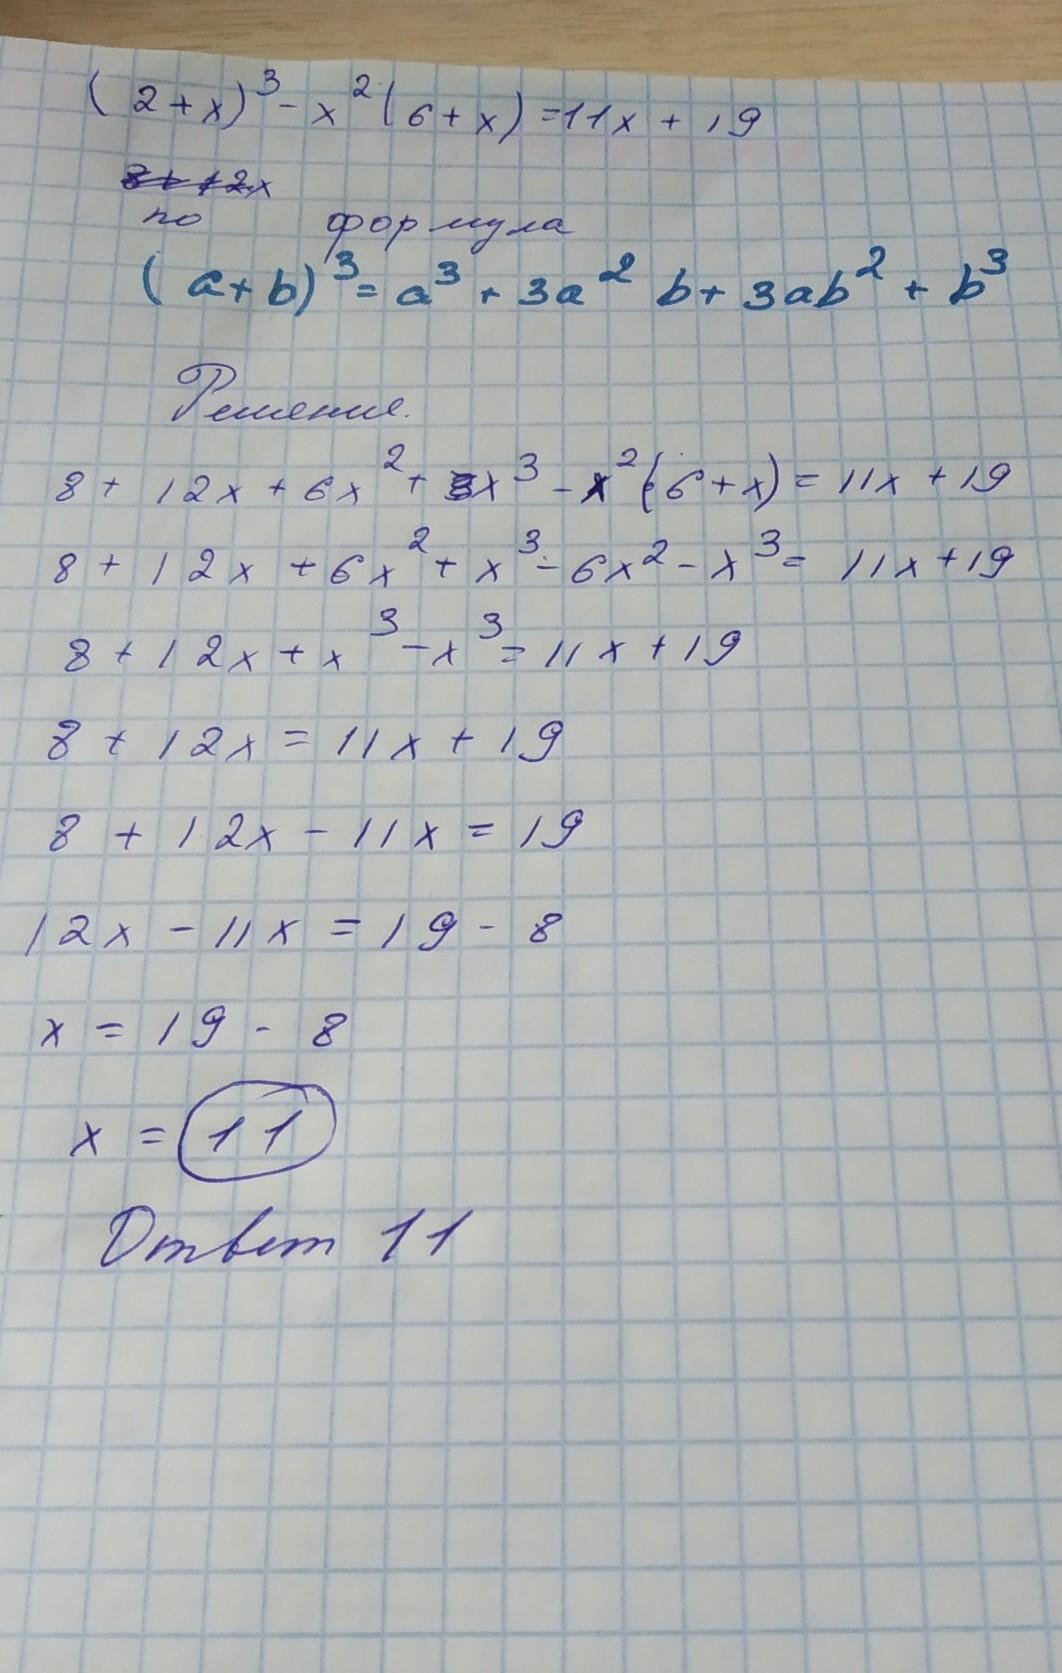 (2+x)³ - x²(6+x) = 11x + 19
8+12x
по формула
(a+b)³ = a³ + 3a²b + 3ab² + b³
Решение.
8 + 12x + 6x² + x³ - x²(6+x) = 11x + 19
8 + 12x + 6x² + x³ - 6x² - x³ = 11x + 19
8 + 12x + x³ - x³ = 11x + 19
8 + 12x = 11x + 19
8 + 12x - 11x = 19
12x - 11x = 19 - 8
x = 19 - 8
x = 11
Ответ 11